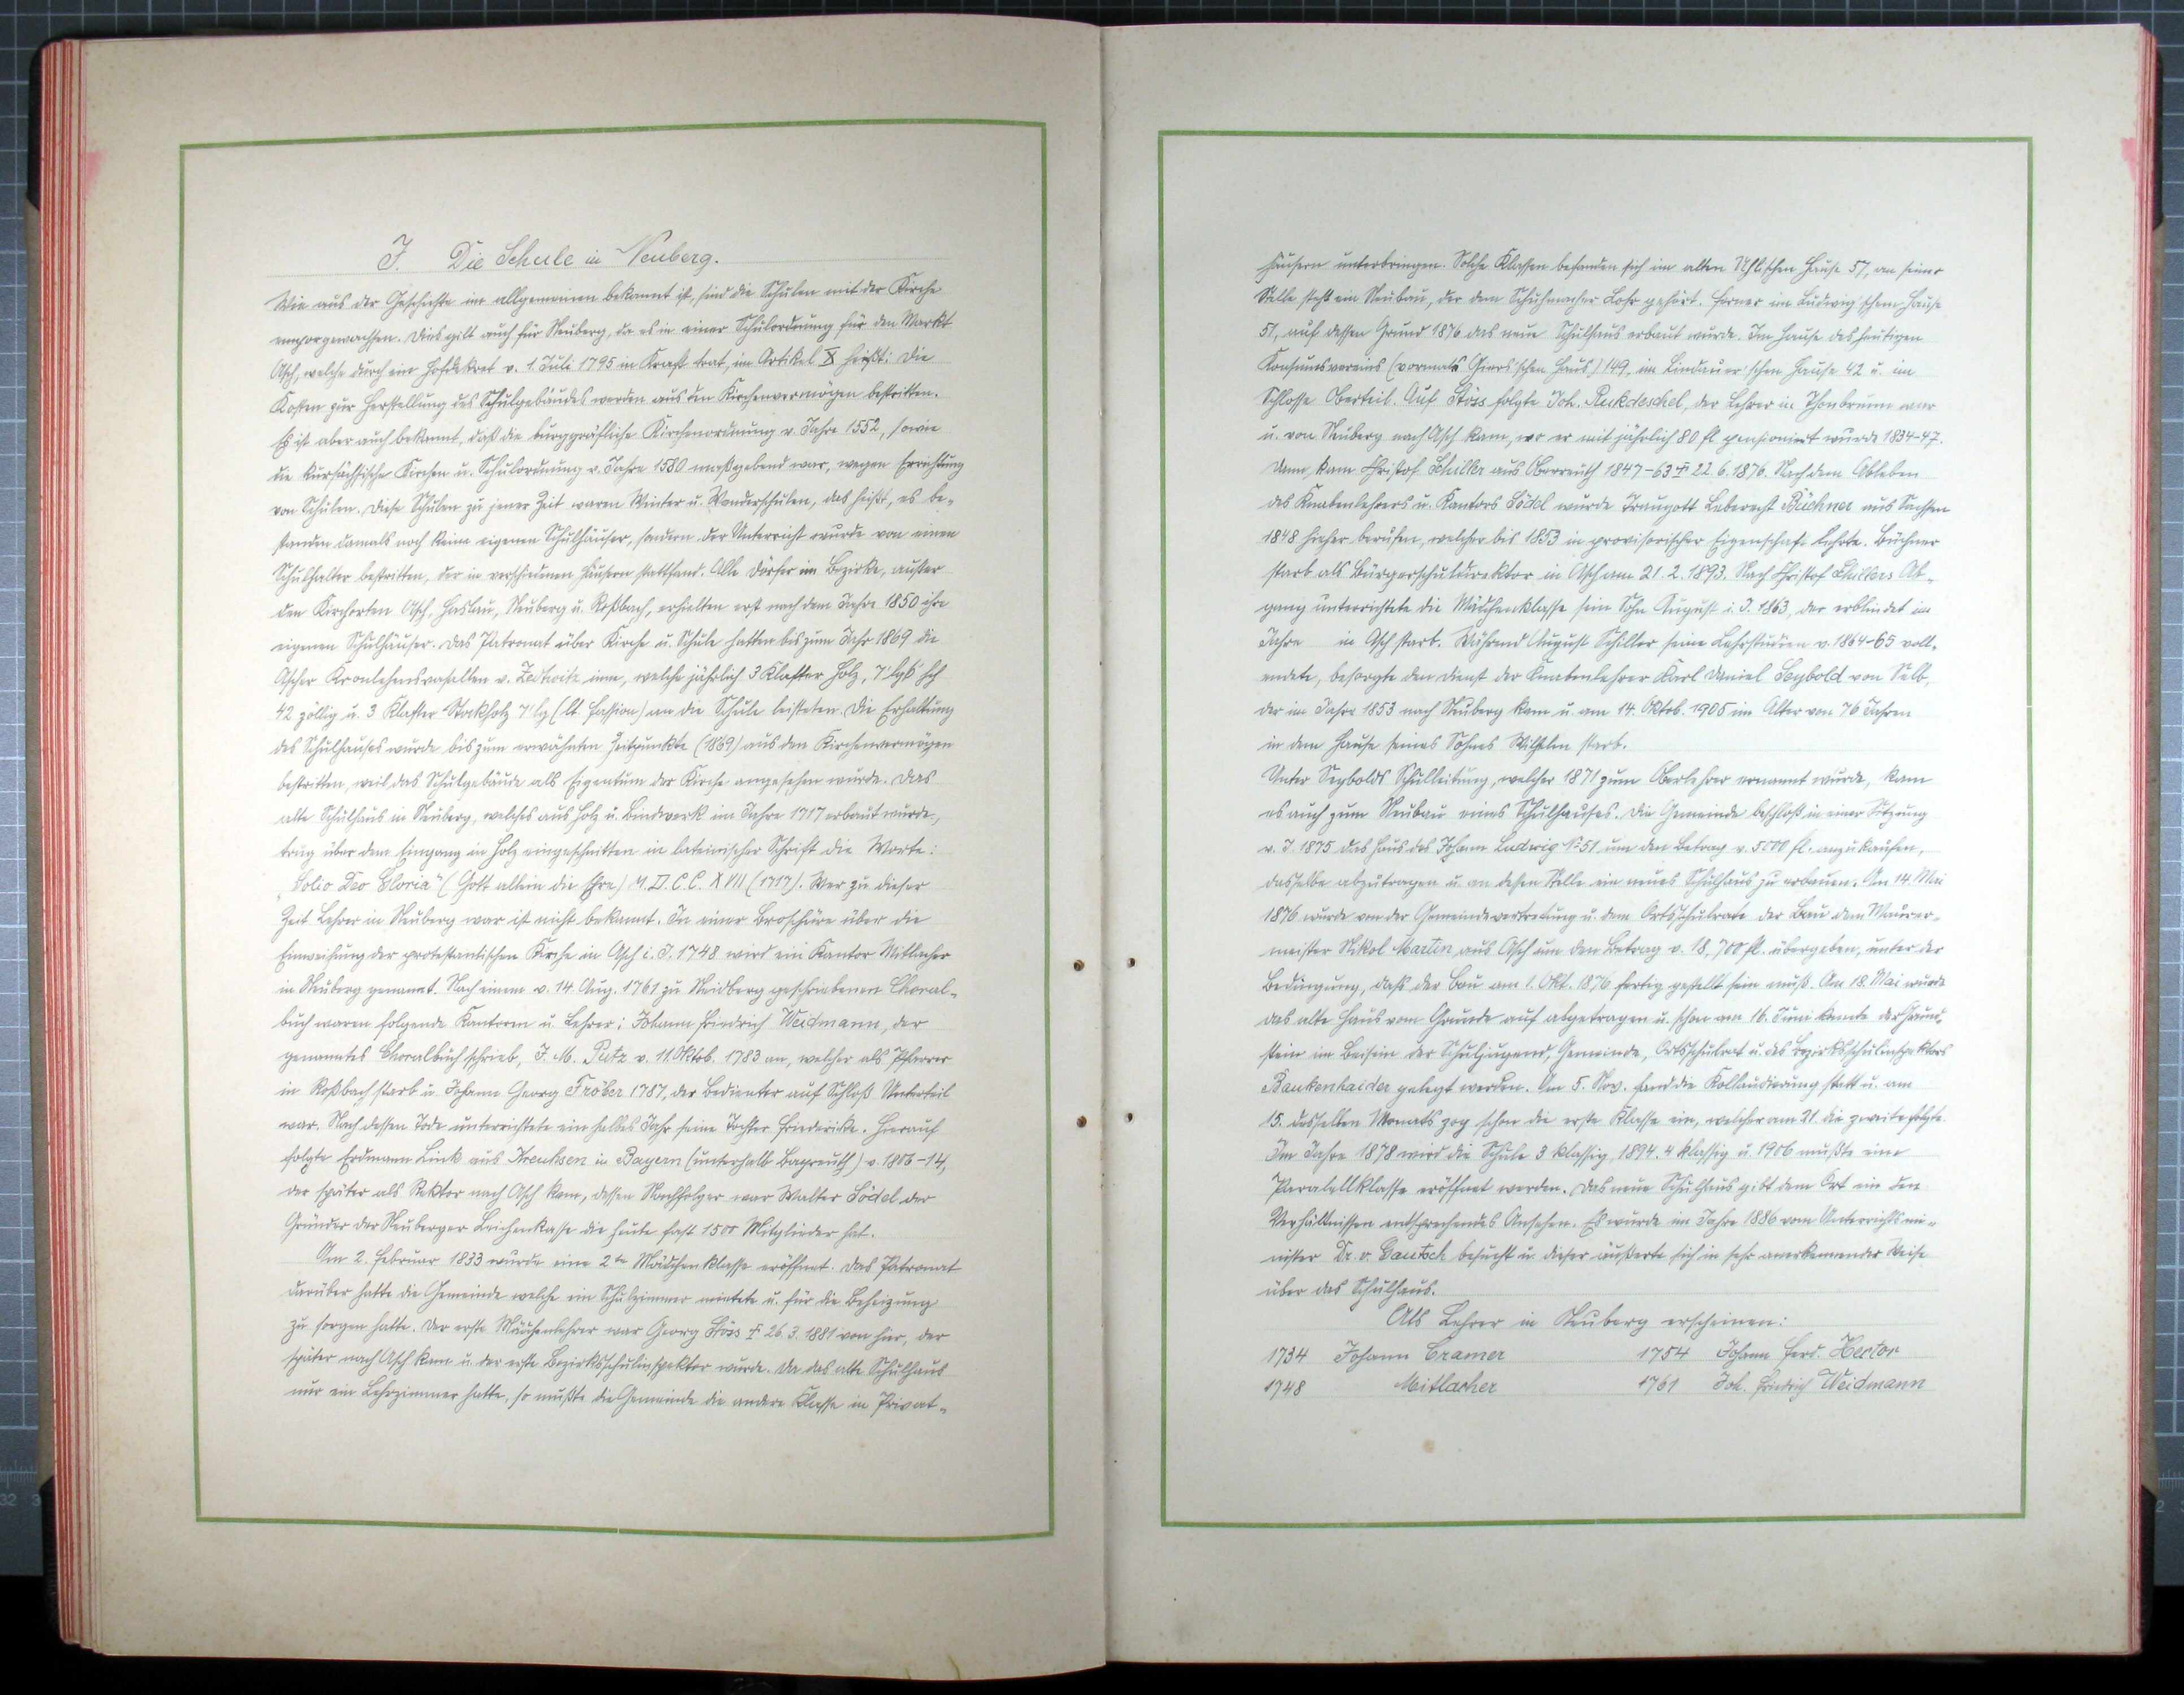 J. Die Schule in Neuberg.
Wie aus der Geschichte im allgemeinen bekannt ist, sind die Schulen mit der Kirche
emporgewachsen. Dies gilt auch für Neuberg, da es in einer Schulordnung für den Markt
Asch, welche durch ein Hofdekret v. 1. Juli 1795 in Kraft trat, im Artikel X heißt: Die
Kosten zur Herstellung des Schulgebäudes werden aus den Kirchenvermögen bestritten.
Es ist aber auch bekannt, daß die burggräfliche Kirchenordnung v. Jahre 1552, sowie
die kursächsische Kirchen u. Schulordnung v. Jahre 1580 maßgebend war, wegen Errichtung
von Schulen. Diese Schulen zu jener Zeit waren Winter u. Wanderschulen, das heißt, es be-
standen damals noch keine eigenen Schulhäuser, sondern der Unterricht wurde von einen
Schulhalter bestritten, der in verschiedenen Häusern stattfand. Alle Dörfer im Bezirke, außer
den Kirchorten Asch, Haslau, Neuberg u. Roßbach, erhielten erst nach dem Jahre 1850 ihre
eigenen Schulhäuser. Das Patronat über Kirche u. Schule hatten bis zum Jahr 1869 die
Ascher Kronlehensvasallen v. Zedtwitz inne, welche jährlich 3 Klafter Holz,
42 zöllig u. 3 Klafter Stockholz (lt. Fassion) an die Schule leisteten. Die Erhaltung
des Schulhauses wurde bis zum erwähnten Zeitpunkte (1869) aus den Kirchenvermögen
bestritten, weil das Schulgebäude als Eigentum der Kirche angesehen wurde. Das
alte Schulhaus in Neuberg, welches aus Holz u. Bindwerk im Jahre 1717 erbaut wurde,
trug über dem Eingang in Holz eingeschnitten in lateinischer Schrift die Worte:
"Solio Deo Gloria" (Gott allein die Ehre) M.D.C.C. XVII (1717). Wer zu dieser
Zeit Lehrer in Neuberg war ist nicht bekannt. In einer Broschüre über die
Einweihung der protestantischen Kirche in Asch i. J. 1748 wird ein Kantor Mitlacher
in Neuberg genannt. Nach einem v. 14. Aug. 1761 zu Neidberg geschriebenen Choral-
buch waren folgende Kantoren u. Lehrer: Johann Friedrich Weidmann, der
genanntes Choralbuch schrieb, J. M. Putz v. 11. Oktob. 1783 an, welcher als Pfarrer
in Roßbach starb u. Johann Georg Tröber 1787, der Bedienter auf Schloß Unterteil
war. Nach dessen Tode unterrichtete ein halbes Jahr seine Tochter Friederike. Hierauf
folgte Erdmann Link aus Kreuhsen in Bayern (unterhalb Bayreuth) v. 1806-14,
der später als Rektor nach Asch kam, dessen Nachfolger war Walter Södel der
Gründer der Neuberger Leichenkasse die heute fast 1500 Mitglieder hat.
Am 2. Februar 1833 wurde eine 2te Mädchenklasse eröffnet. Das Patronat
darüber hatte die Gemeinde welche ein Schulzimmer mietete u. für die Beheizung
zu sorgen hatte. Der erste Mädchenlehrer war Georg Stöss † 26. 3. 1881 von hier, der
später nach Asch kam u. der erste Bezirksschulinspektor wurde. Da das alte Schulhaus
nur ein Lehrzimmer hatte, so mußte die Gemeinde die andere Klasse in Privat-
häusern unterbringen. Solche Klassen befanden sich im alten Uhlischen Hause 57, an seiner
Stelle steht ein Neubau, der dem Schuhmacher Lohr gehört. Ferner im Ludwig'schen Hause
51, auf dessen Grund 1876 das neue Schulhaus erbaut wurde. Im Hause des heutigen
Konsumvereins (vormals Haus) 149, im Lindauer'schen Hause 42 u. im
Schlosse Oberteil. Auf Stöss folgte Joh. Ruckdeschel, der Lehrer in Thonbrunn war
u. von Neuberg nach Asch kam, wo er mit jährlich 80 fl pensioniert wurde 1834-47.
Dann kam Christof Schiller aus Oberreuth 1847-63 † 22. 6. 1876. Nach dem Ableben
des Knabenlehrers u. Kantors Södel wurde Traugott Leberecht Büchner aus Sachsen
1848 hieher berufen, welcher bis 1853 in provisorischer Eigenschaft lehrte. Büchner
starb als Bürgerschuldirektor in Asch am 21. 2. 1893. Nach Christof Schillers Ab-
gang unterrichtete die Mädchenklasse sein Sohn August i. J. 1863, der erblindet im
Jahre in Asch starb. Während August Schiller seine Lehrstudien v. 1864-65 voll-
endete, besorgte den Dienst der Knabenlehrer Karl Daniel Seybold von Selb,
der im Jahre 1853 nach Neuberg kam u. am 14. Oktob. 1905 im Alter von 76 Jahren
in dem Hause seines Sohnes Wilhelm starb.
Unter Seybolds Schulleitung, welcher 1871 zum Oberlehrer ernannt wurde, kam
es auch zum Neubau eines Schulhauses. Die Gemeinde beschloß in einer Sitzung
v. J. 1875 das Haus des Johann Ludwig No 51 um den Betrag v. 5000 fl. anzukaufen,
dasselbe abzutragen u. an dessen Stelle ein neues Schulhaus zu erbauen. Am 14. Mai
1876 wurde von der Gemeindevertretung u. dem Ortsschulrate der Bau dem Maurer-
meister Nikol Martin aus Asch um den Betrag v. 18,700 fl. übergeben, unter der
Bedingung, daß der Bau am 1. Okt. 1876 fertig gestellt sein muß. Am 18. Mai wurde
das alte Haus vom Grunde auf abgetragen u. schon am 16. Juni konnte der Grund-
stein im Beisein der Schuljugend, Gemeinde, Ortsschulrat u. des Bezirksschulinspektors
Baukenhaider gelegt werden. Am 5. Nov. fand die Kollaudierung statt u. am
15. desselben Monats zog schon die erste Klasse ein, welcher am 21. die zweite folgte.
Im Jahre 1878 wird die Schule 3 klassig, 1894. 4 klassig u. 1906 mußte eine
Parallelklasse eröffnet werden. Das neue Schulhaus gibt dem Ort ein den
Verhältnissen entsprechendes Ansehen. Es wurde im Jahre 1886 vom Unterrichtsmi-
nister Dr. v. Gautsch besucht u. dieser äußerte sich in sehr anerkennender Weise
über das Schulhaus.
Als Lehrer in Neuberg erscheinen:
1734 Johann Cramer 1754 Johann Ferd. Hector
1748 Mitlacher 1761 Joh. Friedrich Weidmann